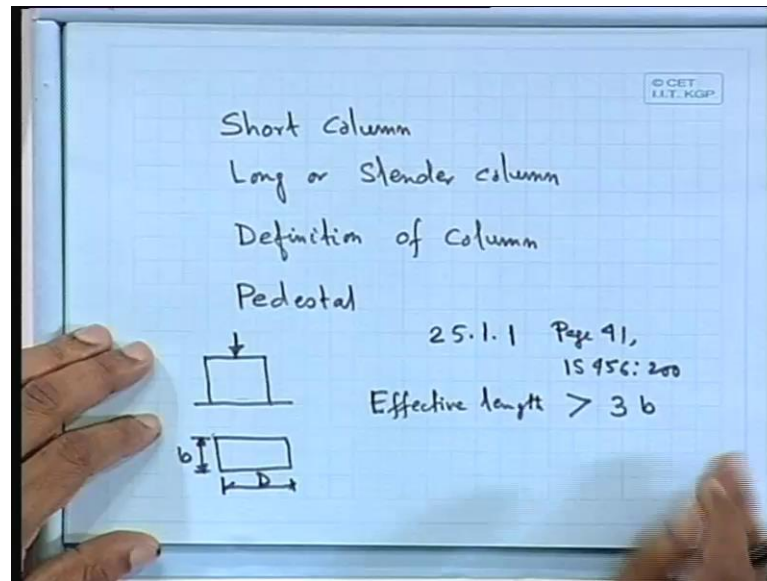 © CET
I.I.T. KGP
Short Column
Long or Slender column
Definition of Column
Pedestal
25.1.1 Page 41,
IS 456:200
Effective length > 3 b
b
D